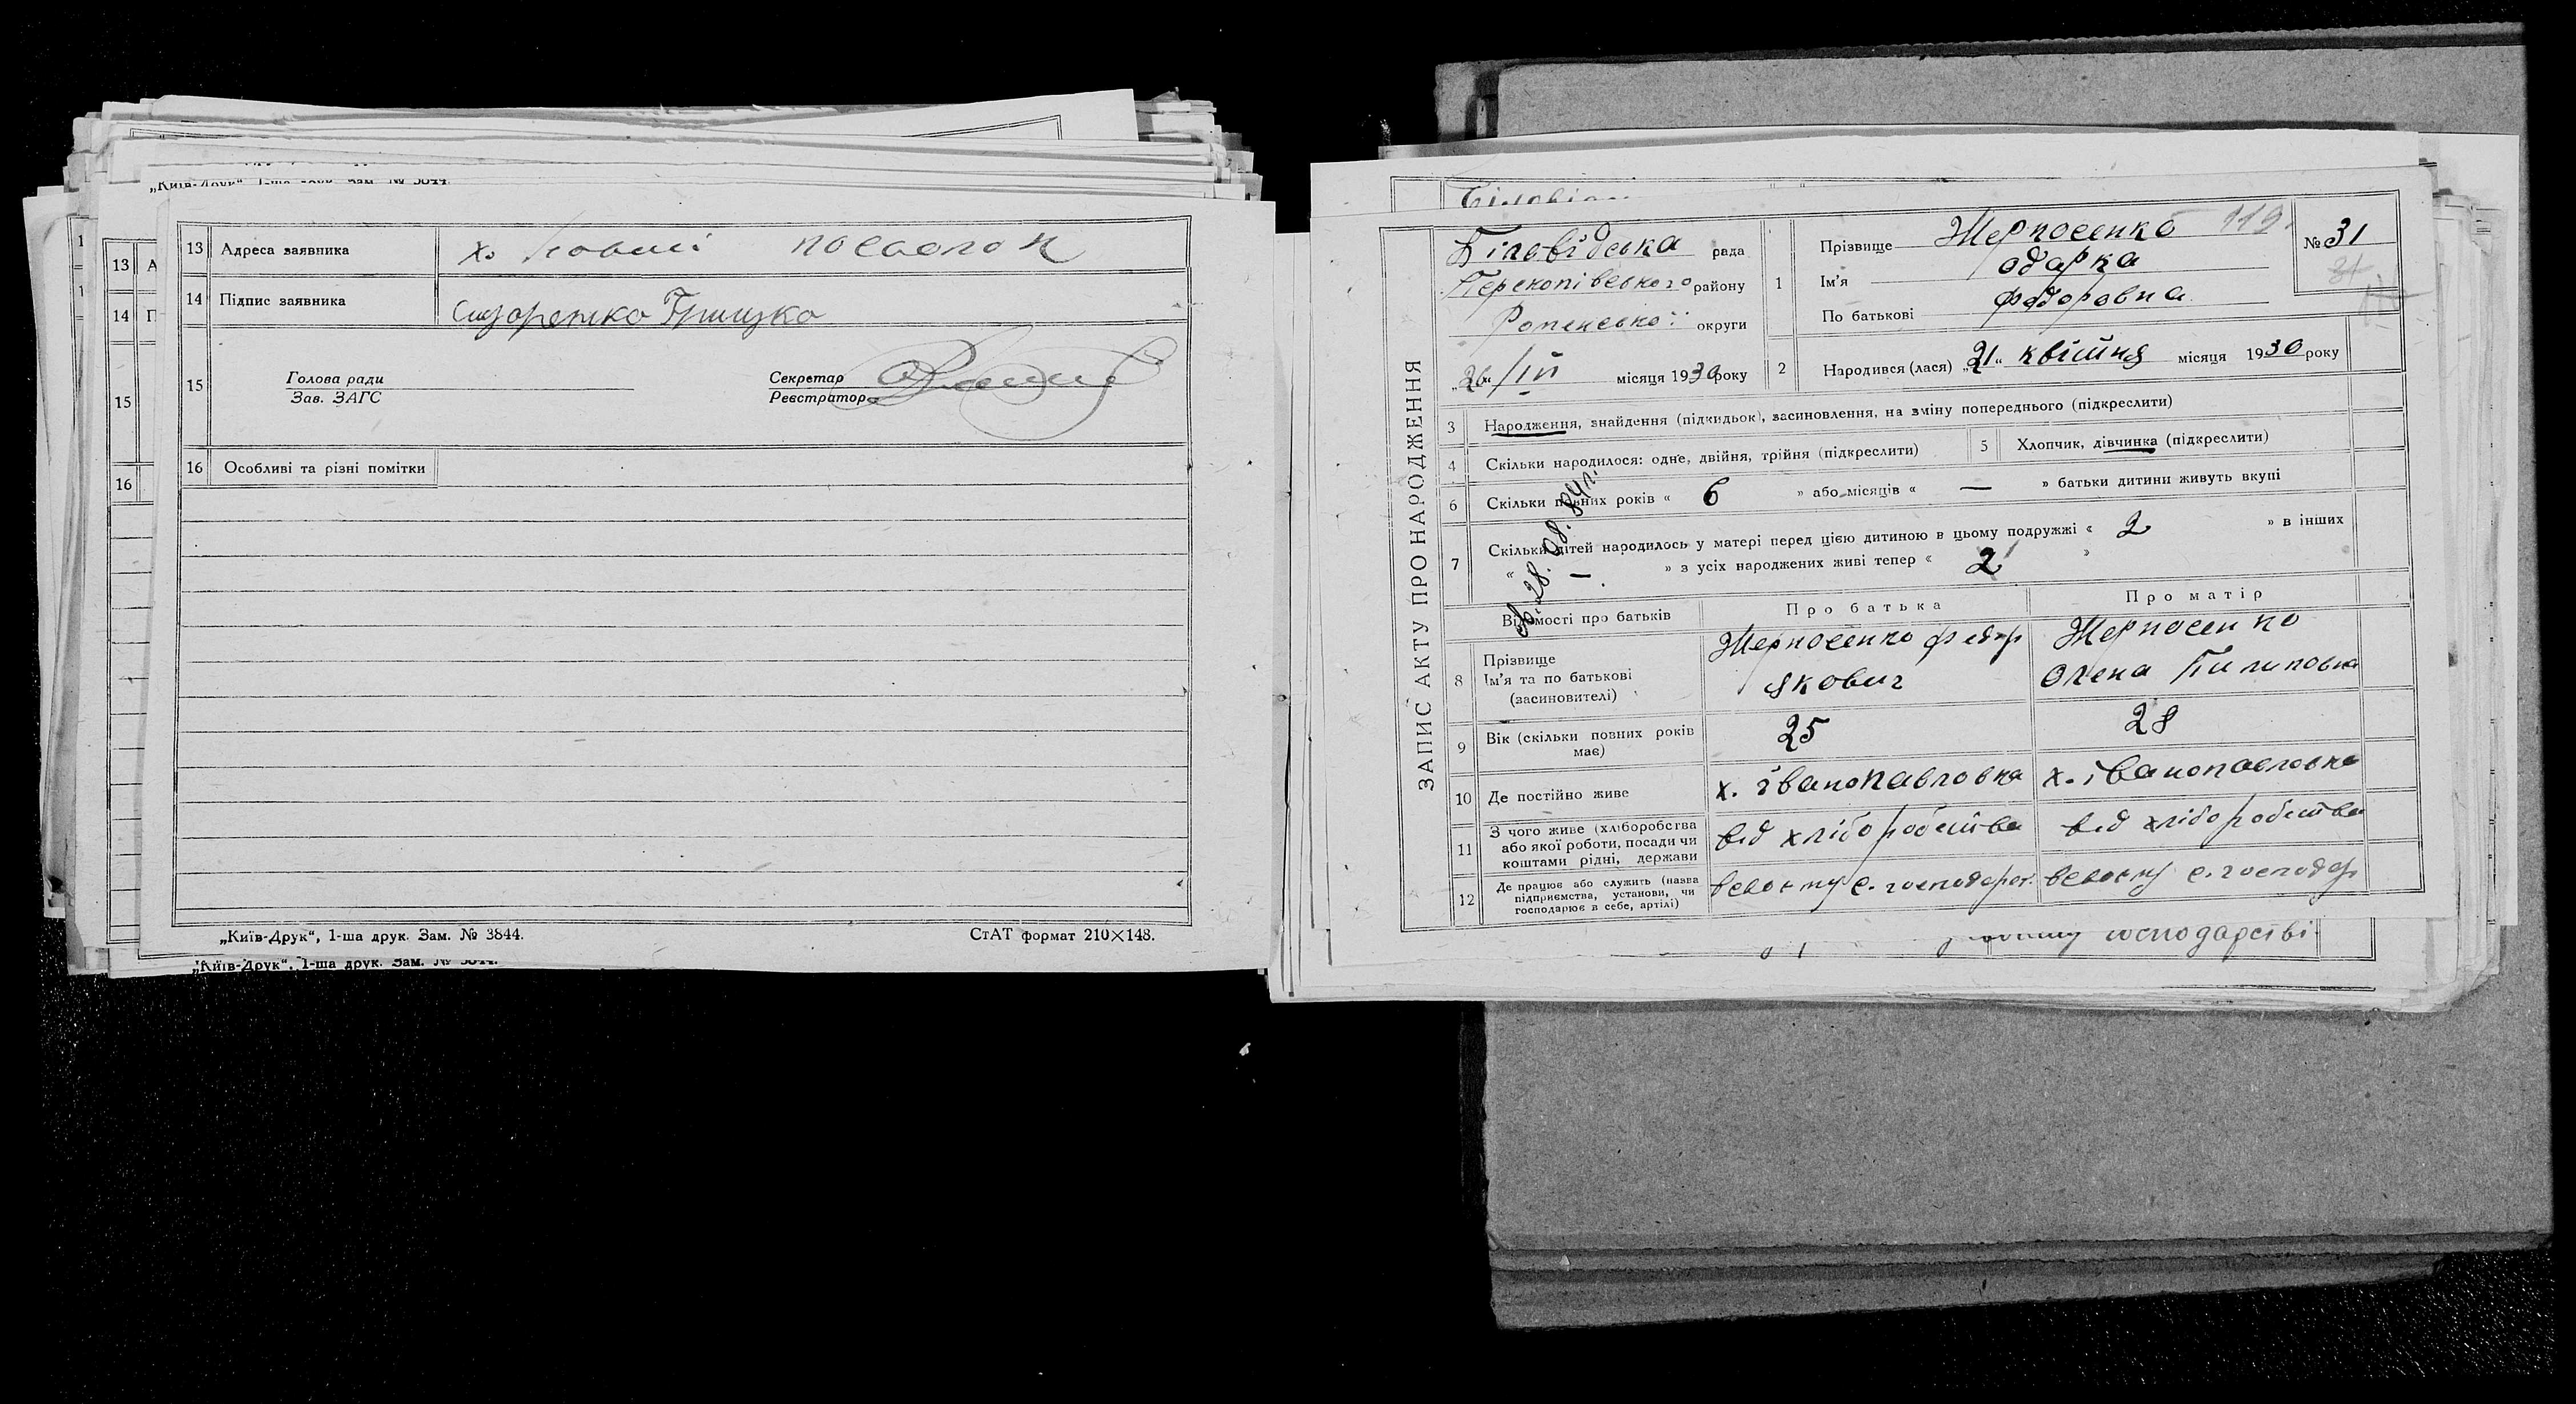 13 Адреса заявника х. новий посьолок
14 Підпис заявника Сидоренко Грицько
15 Голова ради
Зав. ЗАГС
Секретар
Реєстратор
16 Особливі та різні помітки
„Київ-Друк“, 1-ша друк. Зам. № 3844.
СтАТ формат 210×148.
ЗАПИС АКТУ ПРО НАРОДЖЕННЯ
Біловідська рада
Перекопівського району
Роменської округи
„26“ / IV місяця 1930 року
1 Прізвище Жерносенко 119.
Ім'я Одарка
По батькові Федоровна
№ 31
31
2 Народився (лася) „21“ квітня місяця 1930 року
3 Народження, знайдення (підкидьок), засиновлення, на зміну попереднього (підкреслити)
4 Скільки народилося: одне, двійня, трійня (підкреслити)
5 Хлопчик, дівчинка (підкреслити)
6 Скільки повних років « 6 » або місяців « — » батьки дитини живуть вкупі
7 Скільки дітей народилось у матері перед цією дитиною в цьому подружжі « 2 » в інших
« — » з усіх народжених живі тепер « 2 »
28.08.84г.
Відомості про батьків Про батька Про матір
8 Прізвище
Ім'я та по батькові
(засиновителі)
Жерносенко Федор
Якович
Жерносенко
Олена Пилиповна
9 Вік (скільки повних років має) 25 28
10 Де постійно живе х. Іванопавловка х. Іванопавловка
11 З чого живе (хліборобства
або якої роботи, посади чи
коштами рідні, держави
від хліборобства від хліборобства
12 Де працює або служить (назва
підприємства, установи, чи
господарює в себе, артілі)
в свойому с. господарст. в свойому с. господар
господарстві
„Київ-Друк“, 1-ша друк. Зам. № 3844.